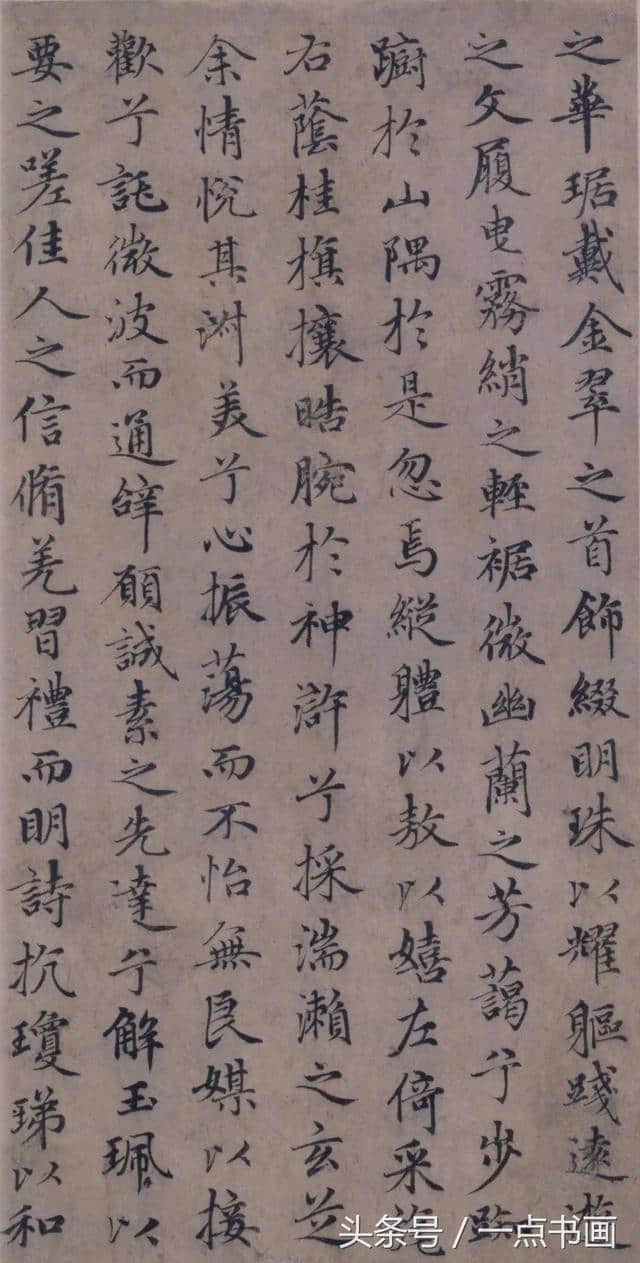 之華琚戴金翠之首飾綴明珠以耀軀踐遠遊
之文履曳霧綃之輕裾微幽蘭之芳藹兮步踟
躕於山隅於是忽焉縱軆以敖以嬉左倚采旄
右蔭桂旗攘晧腕於神滸兮採湍瀨之玄芝
余情悅其淑美兮心振蕩而不怡無良媒以接
歡兮託微波而通辝願誠素之先達兮解玉珮以
要之嗟佳人之信脩羌習禮而明詩抗瓊珶以和
头条号/一点书画